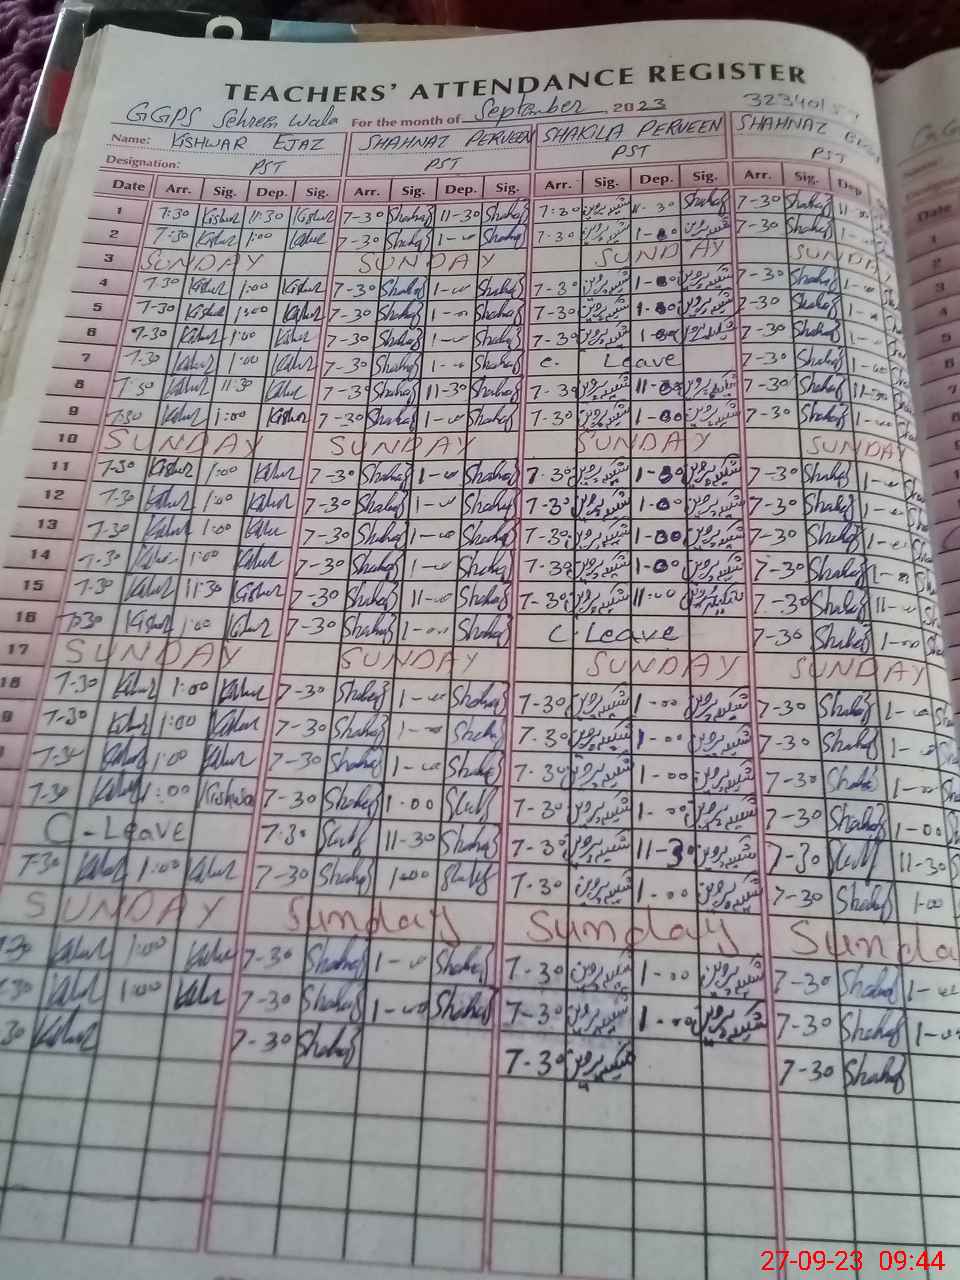 TEACHERS' ATTENDANCE REGISTER
GGPS Sehren Wala For the month of September 2023 323401
Name: KISHWAR EJAZ SHAHNAZ PERVEEN SHAKILA PERVEEN SHAHNAZ
Designation: PST PST PST PST
Date Arr. Sig. Dep. Sig. Arr. Sig. Dep. Sig. Arr. Sig. Dep. Sig. Arr. Sig. Dep
1 7:30 Kishwr 11:30 Kishwr 7-30 Shahaz 11-30 Shahaz 7-30 شکیلہ پروین 11-30 Shahaz 7-30 Shahaz 11-
2 7:30 Kishwr 1:00 Kishwr 7-30 Shahaz 1-00 Shahaz 7-30 شکیلہ پروین 1-00 شکیلہ پروین 7-30 Shahaz 1-00
3 SUNDAY SUNDAY SUNDAY SUNDA
4 7.30 Kishwr 1:00 Kishwr 7-30 Shahaz 1-00 Shahaz 7-30 شکیلہ پروین 1-00 شکیلہ پروین 7-30 Shahaz 1-00
5 7.30 Kishwr 1:00 Kishwr 7-30 Shahaz 1-00 Shahaz 7-30 شکیلہ پروین 1-00 شکیلہ پروین 7-30 Shahaz 1-00
6 7.30 Kishwr 1:00 Kishwr 7-30 Shahaz 1-00 Shahaz 7-30 شکیلہ پروین 1-00 شکیلہ پروین 7-30 Shahaz 1-00
7 7.30 Kishwr 1:00 Kishwr 7-30 Shahaz 1-00 Shahaz C. Leave 7-30 Shahaz 1-00
8 7:30 Kishwr 11:30 Kishwr 7-30 Shahaz 11-30 Shahaz 7-30 شکیلہ پروین 11-30 شکیلہ پروین 7-30 Shahaz 11-30
9 7.30 Kishwr 1:00 Kishwr 7-30 Shahaz 1-00 Shahaz 7-30 شکیلہ پروین 1-00 شکیلہ پروین 7-30 Shahaz 1-00
10 SUNDAY SUNDAY SUNDAY SUNDAY
11 7.30 Kishwr 1:00 Kishwr 7-30 Shahaz 1-00 Shahaz 7-30 شکیلہ پروین 1-00 شکیلہ پروین 7-30 Shahaz 1-00
12 7.30 Kishwr 1:00 Kishwr 7-30 Shahaz 1-00 Shahaz 7-30 شکیلہ پروین 1-00 شکیلہ پروین 7-30 Shahaz 1-00
13 7.30 Kishwr 1:00 Kishwr 7-30 Shahaz 1-00 Shahaz 7-30 شکیلہ پروین 1-00 شکیلہ پروین 7-30 Shahaz 1-00
14 7.30 Kishwr 1:00 Kishwr 7-30 Shahaz 1-00 Shahaz 7-30 شکیلہ پروین 1-00 شکیلہ پروین 7-30 Shahaz 1-00
15 7.30 Kishwr 11:30 Kishwr 7-30 Shahaz 11-00 Shahaz 7-30 شکیلہ پروین 11:00 شکیلہ پروین 7-30 Shahaz 11-00
16 7:30 Kishwr 1:00 Kishwr 7-30 Shahaz 1-00 Shahaz C. Leave 7-30 Shahaz 1-00
17 SUNDAY SUNDAY SUNDAY SUNDAY
18 7-30 Kishwr 1:00 Kishwr 7-30 Shahaz 1-00 Shahaz 7-30 شکیلہ پروین 1-00 شکیلہ پروین 7-30 Shahaz 1-00
7-30 Kishwr 1:00 Kishwr 7-30 Shahaz 1-00 Shahaz 7-30 شکیلہ پروین 1-00 شکیلہ پروین 7-30 Shahaz 1-00
7-30 Kishwr 1:00 Kishwr 7-30 Shahaz 1-00 Shahaz 7-30 شکیلہ پروین 1-00 شکیلہ پروین 7-30 Shahaz 1-00
7.30 Kishwr 1:00 Kishwar 7-30 Shahaz 1-00 7-30 شکیلہ پروین 1-00 شکیلہ پروین 7-30 Shahaz 1-00
C-Leave 7:30 11-30 Shahaz 7-30 شکیلہ پروین 11-30 شکیلہ پروین 7-30 11-30
7.30 Kishwr 1:00 Kishwr 7-30 Shahaz 1:00 7-30 شکیلہ پروین 1-00 شکیلہ پروین 7-30 Shahaz 1-00
SUNDAY Sunday Sunday Sunda
30 Kishwr 1:00 Kishwr 7-30 Shahaz 1-00 Shahaz 7-30 شکیلہ پروین 1-00 شکیلہ پروین 7-30 Shahaz 1-00
30 Kishwr 1:00 Kishwr 7-30 Shahaz 1-00 Shahaz 7-30 شکیلہ پروین 1-00 شکیلہ پروین 7-30 Shahaz 1-00
30 Kishwr 7-30 Shahaz 7-30 شکیلہ پروین 7-30 Shahaz
27-09-23 09:44